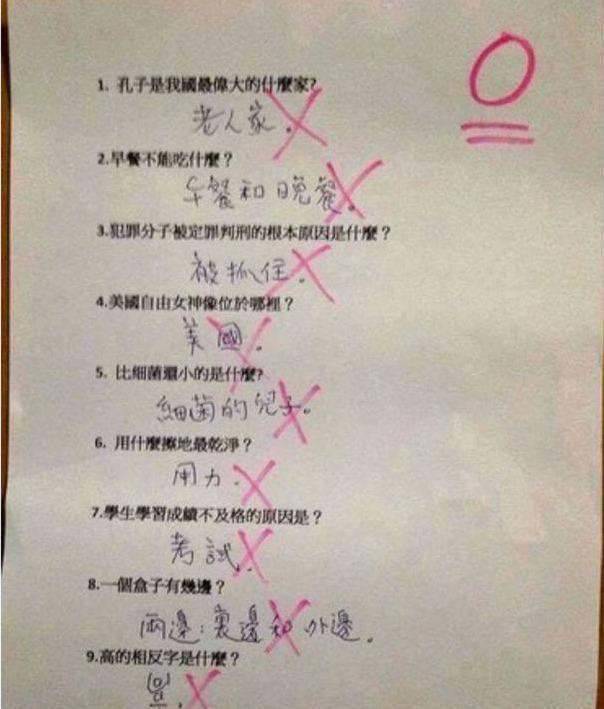 0
1. 孔子是我國最偉大的什麼家?
老人家。
2.早餐不能吃什麼？
午餐和晚餐。
3.犯罪分子被定罪判刑的根本原因是什麼？
被抓住。
4.美國自由女神像位於哪裡？
美國。
5. 比細菌還小的是什麼?
細菌的兒子。
6. 用什麼擦地最乾淨？
用力.
7.學生學習成績不及格的原因是？
考試.
8.一個盒子有幾邊？
兩邊:裏邊和外邊。
9.高的相反字是什麼？